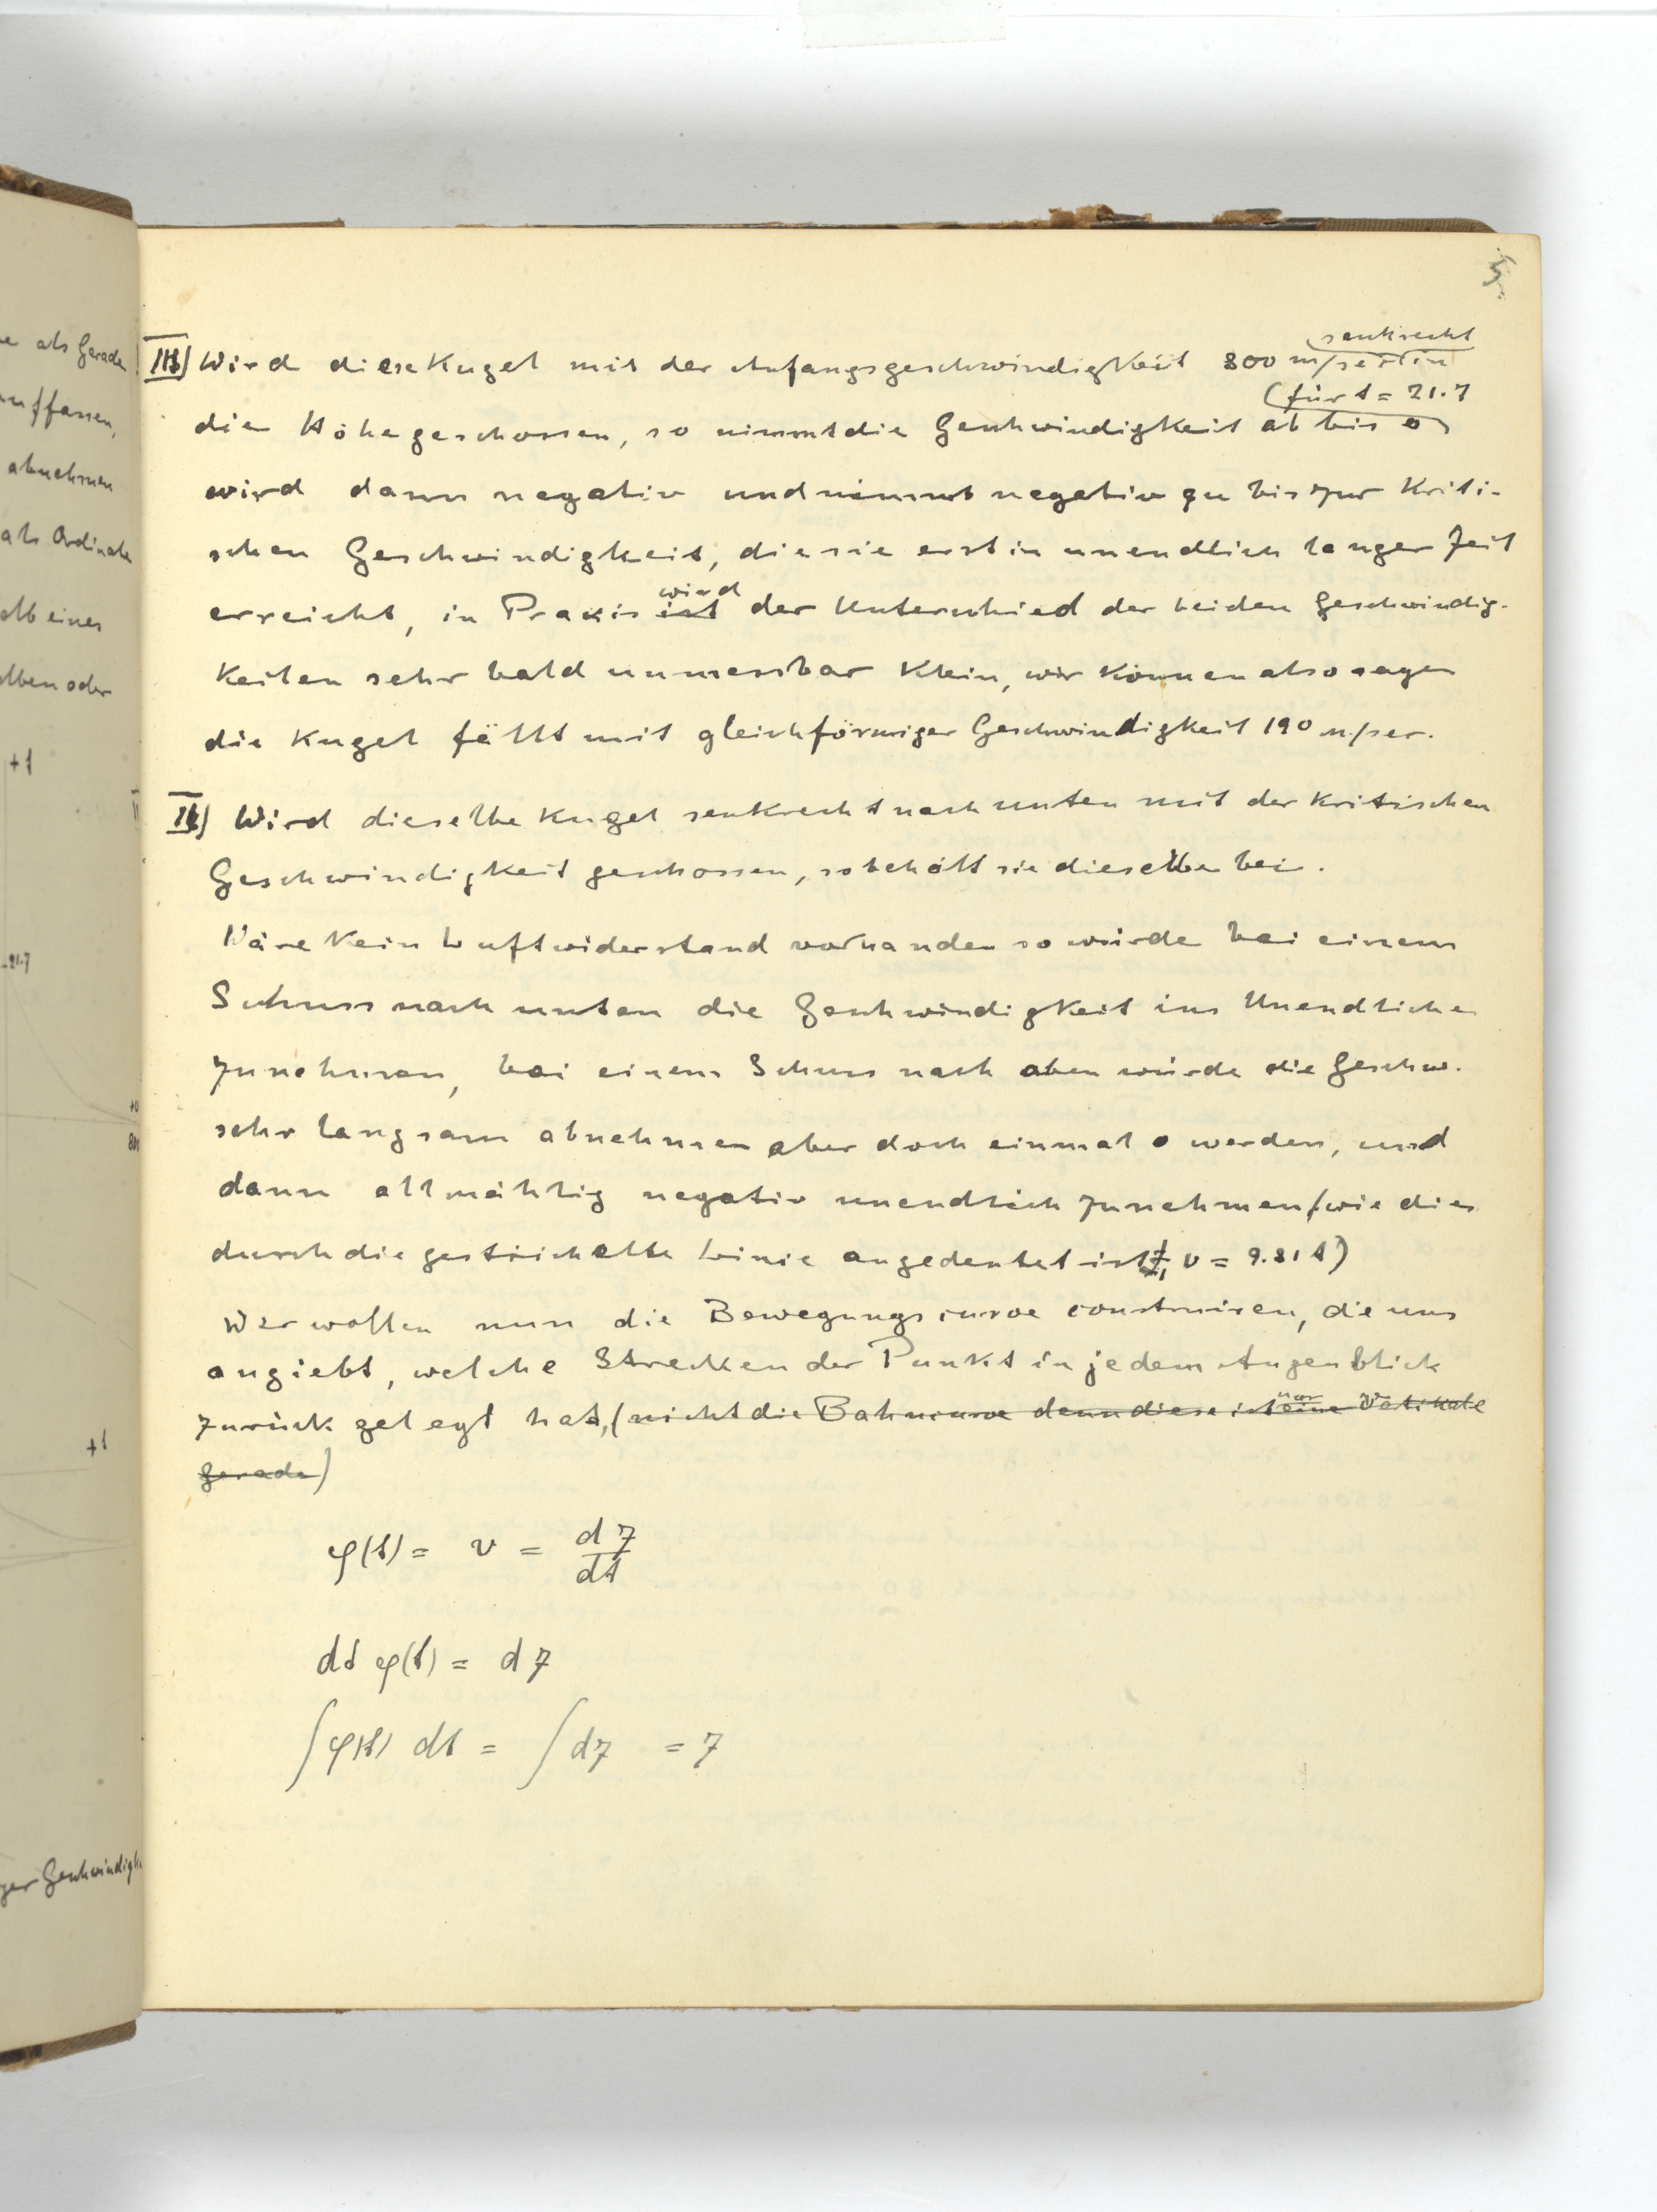 5.
senkrecht
III) Wird diese Kugel mit der Anfangsgeschwindigkeit 800 m/sec in
(für t = 21.7
die Höhe geschossen, so nimmt die Geschwindigkeit ab bis 0)
wird dann negativ und nimmt negativ zu bis zur Kriti-
schen Geschwindigkeit, die sie erst in unendlich langer Zeit
wird
erreicht, in Praxis ist der Unterschied der beiden Geschwindig-
keiten sehr bald unmessbar klein, wir können also sagen
die Kugel fällt mit gleichförmiger Geschwindigkeit 190 m/sec.
IV) Wird dieselbe Kugel senkrecht nach unten mit der kritischen
Geschwindigkeit geschossen, so behält sie dieselbe bei.
Wäre kein Luftwiderstand vorhanden so würde bei einem
Schuss nach unten die Geschwindigkeit ins Unendliche
zunehmen, bei einem Schuss nach oben würde die Geschw.
sehr langsam abnehmen aber doch einmal 0 werden, und
dann allmählig negativ unendlich zunehmen (wie dies
durch die gestrichelte Linie angedeutet ist, v = 9.81 t)
Wir wollen nun die Bewegungscurve construiren, die uns
angiebt, welche Strecken der Punkt in jedem Augenblick
nur
zurück gelegt hat, (nicht die Bahncurve denn diese ist eine Vertikale
Gerade)
φ(t) = v = dz/dt
dt φ(t) = dz
∫φ(t) dt = ∫dz = z
als Gerade
auffassen,
abnehmen
als Ordinate
alb eines
elben oder
+1
-21.7
+1
ger Geschwindigk